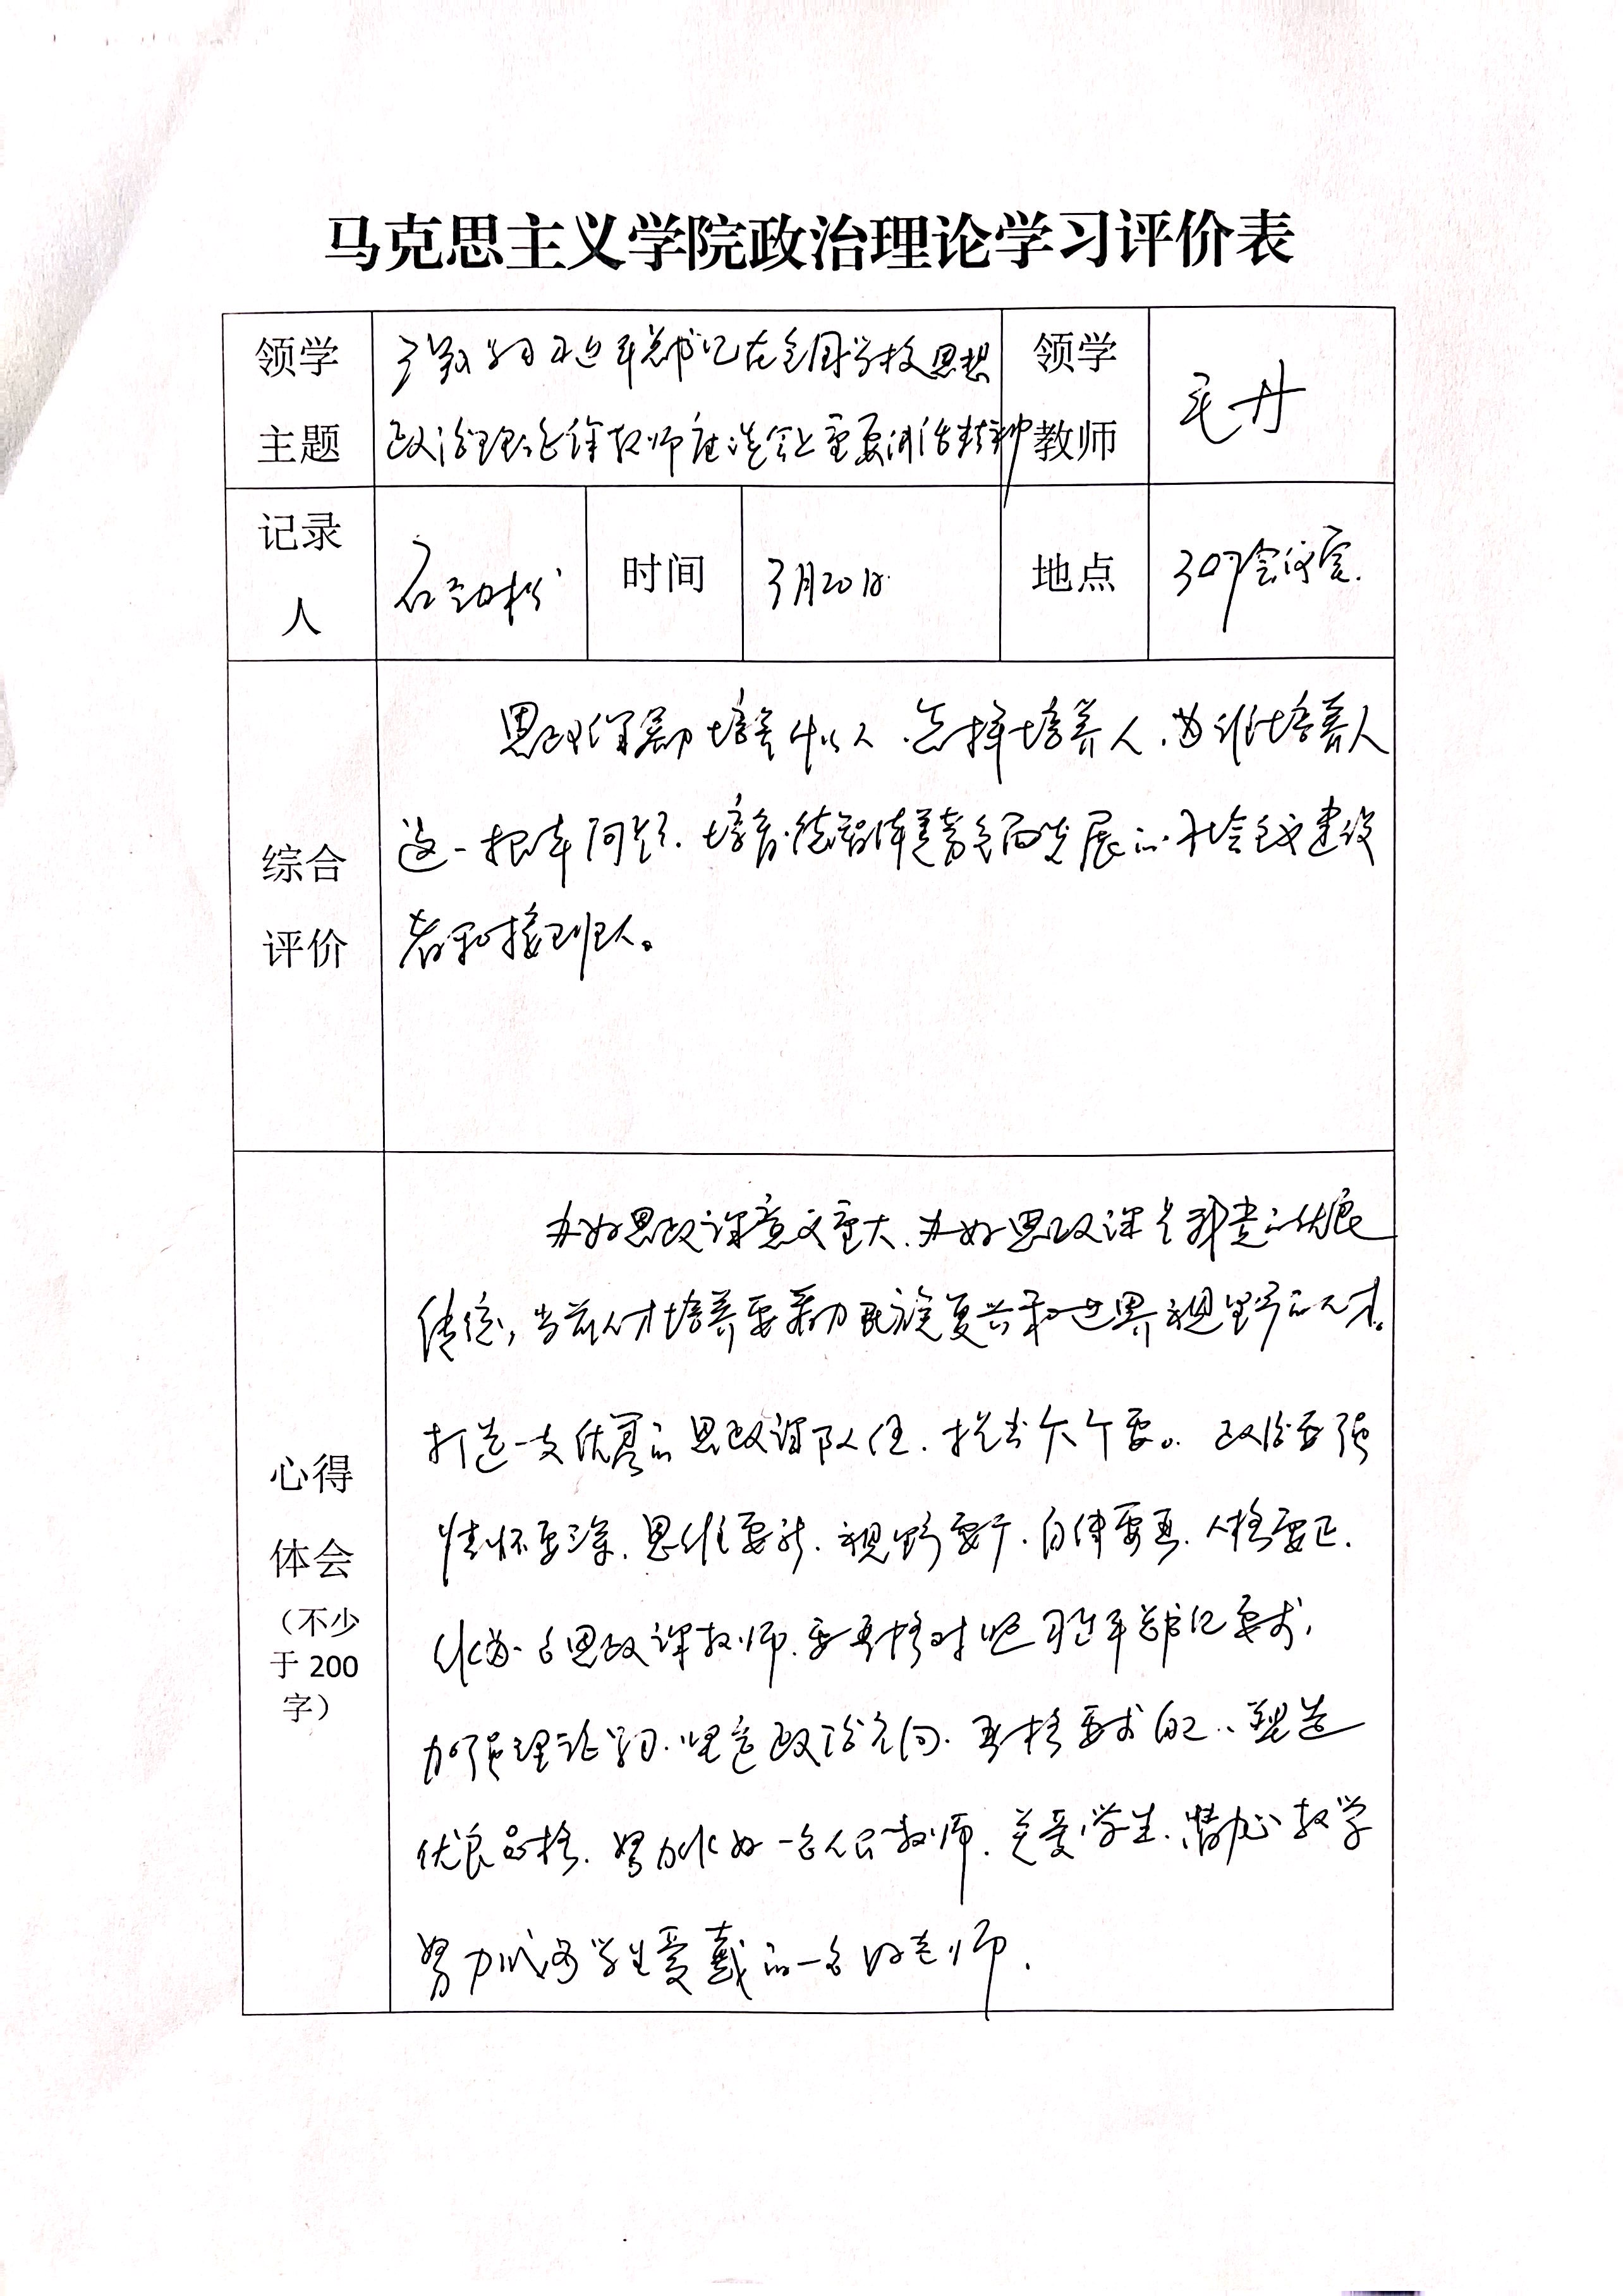 马克思主义学院政治理论学习评价表
领学
主题
学习习近平总书记在全国学校思想
政治理论课教师座谈会上重要讲话精神
领学
教师
毛丹
记录
人
时间
3月20日
地点
307会议室.
综合
评价
思政课要为培养什么人.怎样培养人.为谁培养人
这一根本问题.培育德智体美劳全面发展的社会主义建设
者和接班人。
心得
体会
(不少
于 200
字)
办好思政课意义重大.办好思政课是我党的优良
传统,当前人才培养要着力民族复兴和世界视野的人才。
打造一支优秀的思政课队伍.提出六个要。政治要强
情怀要深.思维要新.视野要广.自律要严.人格要正.
作为一名思政课教师.要严格对照习近平总书记要求,
加强理论学习.坚定政治方向.严格要求自己.塑造
优良品格.努力做好一名人民教师.关爱学生.精心教学
努力成为学生爱戴的一名好老师.